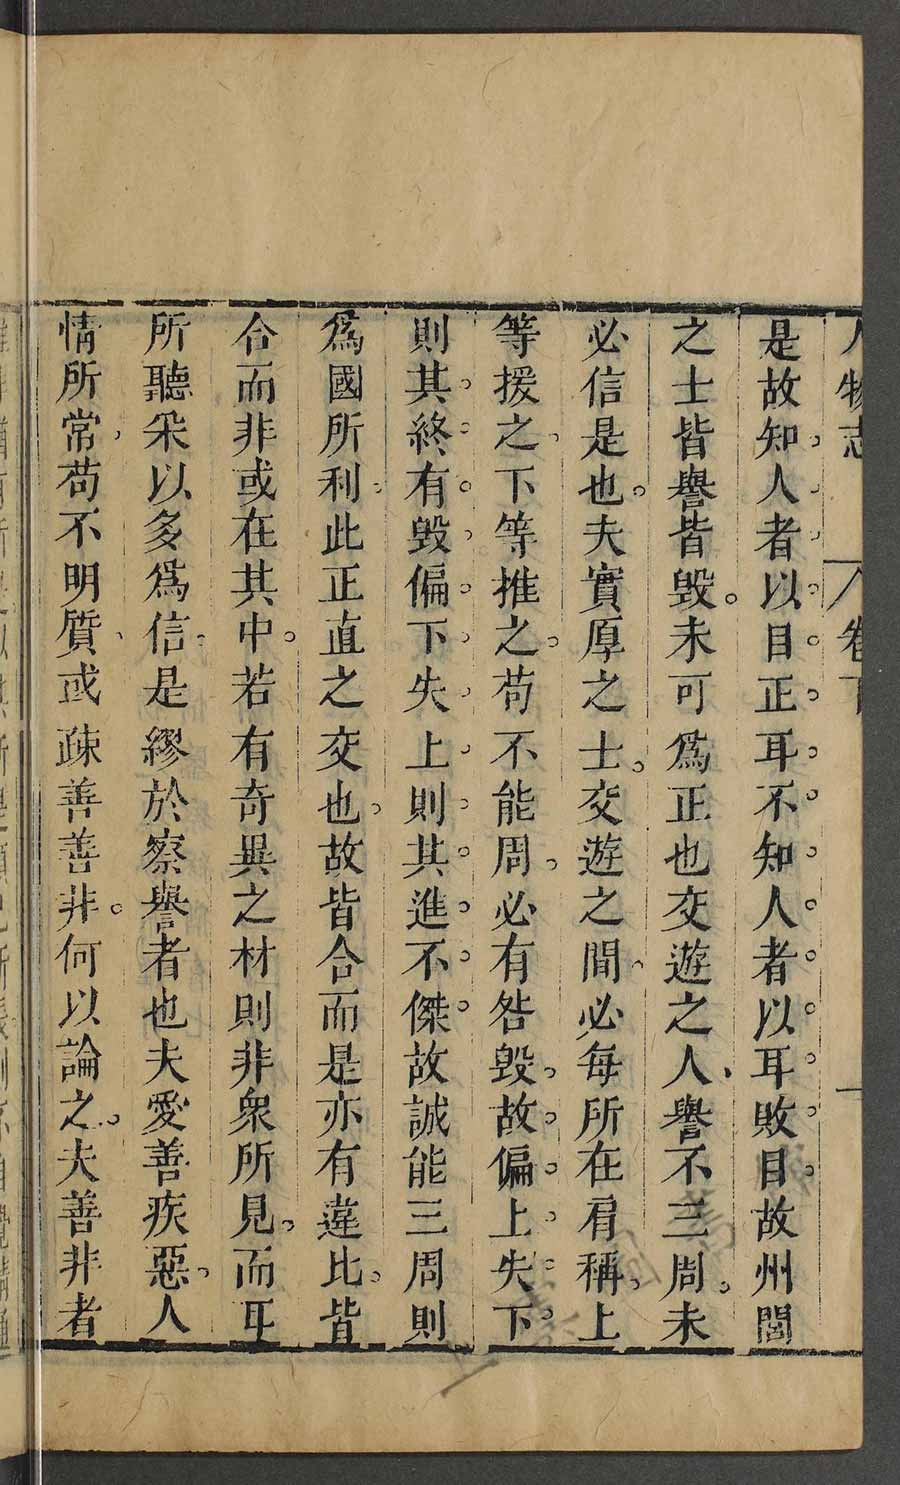 人物志 卷下 一
是故知人者以目正耳不知人者以耳敗目故州閭
之士皆譽皆毀未可爲正也交遊之人譽不三周未
必信是也夫實厚之士交遊之間必每所在肩稱上
等援之下等推之苟不能周必有咎毀故偏上失下
則其終有毀偏下失上則其進不傑故誠能三周則
爲國所利此正直之交也故皆合而是亦有違比皆
合而非或在其中若有奇異之材則非衆所見而耳
所聽采以多爲信是繆於察譽者也夫愛善疾惡人
情所常苟不明質或疎善善非何以論之夫善非者